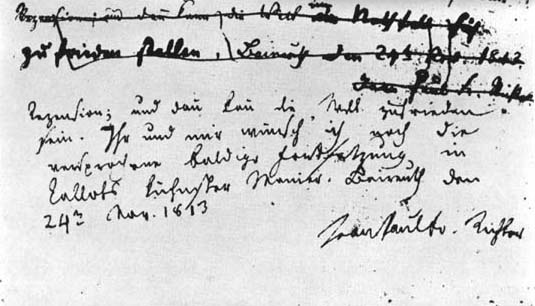 Rezension; und dan kan die Welt
zu frieden stellen. Baireuth den 24t Nov. 1813
Jean Paul Fr. Richter
Rezension; und dan kan die Welt zufrieden
sein. Ihr und mir wünsch' ich noch die
versprochene baldige Fortsetzung in
Callots kühnster Manier. Baireuth den
24ten Nov. 1813
Jean Paul Fr. Richter